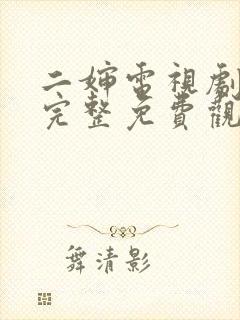 二婶电視劇
完整免費觀
舞清影